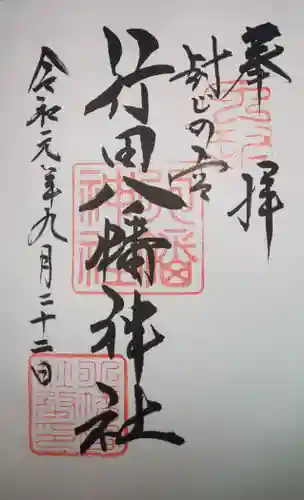 奉拝
封じの宮
行田八幡神社
令和元年九月二十二日